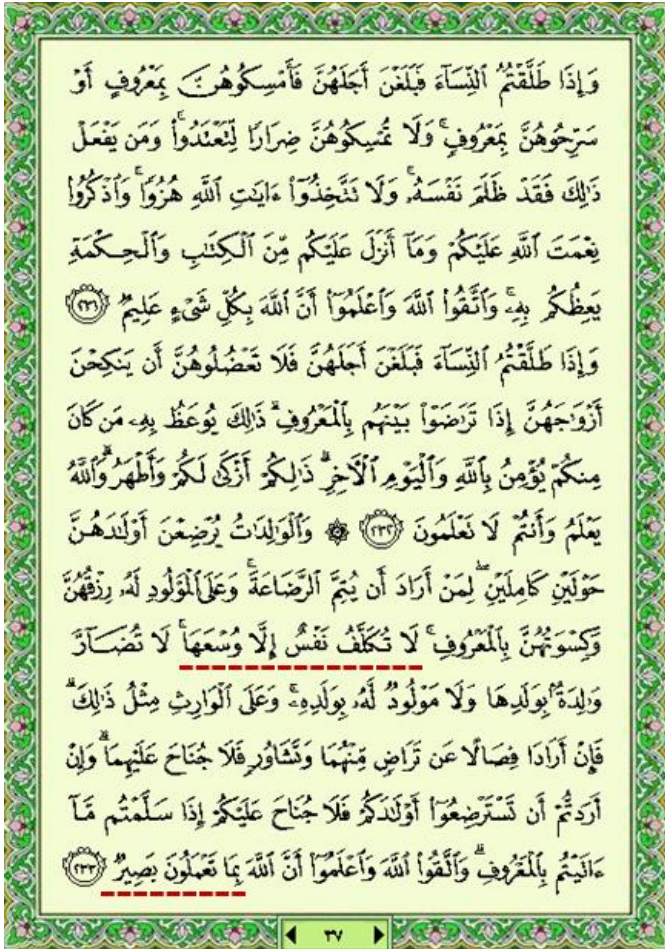 وَإِذَا طَلَّقْتُمُ ٱلنِّسَآءَ فَبَلَغْنَ أَجَلَهُنَّ فَأَمْسِكُوهُنَّ بِمَعْرُوفٍ أَوْ
سَرِّحُوهُنَّ بِمَعْرُوفٍ ۚ وَلَا تُمْسِكُوهُنَّ ضِرَارًا لِّتَعْتَدُوا۟ ۚ وَمَن يَفْعَلْ
ذَٰلِكَ فَقَدْ ظَلَمَ نَفْسَهُۥ ۚ وَلَا تَتَّخِذُوٓا۟ ءَايَٰتِ ٱللَّهِ هُزُوًا ۚ وَٱذْكُرُوا۟
نِعْمَتَ ٱللَّهِ عَلَيْكُمْ وَمَآ أَنزَلَ عَلَيْكُم مِّنَ ٱلْكِتَٰبِ وَٱلْحِكْمَةِ
يَعِظُكُم بِهِۦ ۚ وَٱتَّقُوا۟ ٱللَّهَ وَٱعْلَمُوٓا۟ أَنَّ ٱللَّهَ بِكُلِّ شَىْءٍ عَلِيمٌ ٢٣١
وَإِذَا طَلَّقْتُمُ ٱلنِّسَآءَ فَبَلَغْنَ أَجَلَهُنَّ فَلَا تَعْضُلُوهُنَّ أَن يَنكِحْنَ
أَزْوَٰجَهُنَّ إِذَا تَرَٰضَوْا۟ بَيْنَهُم بِٱلْمَعْرُوفِ ۗ ذَٰلِكَ يُوعَظُ بِهِۦ مَن كَانَ
مِنكُمْ يُؤْمِنُ بِٱللَّهِ وَٱلْيَوْمِ ٱلْءَاخِرِ ۗ ذَٰلِكُمْ أَزْكَىٰ لَكُمْ وَأَطْهَرُ ۗ وَٱللَّهُ
يَعْلَمُ وَأَنتُمْ لَا تَعْلَمُونَ ٢٣٢ ۞ وَٱلْوَٰلِدَٰتُ يُرْضِعْنَ أَوْلَٰدَهُنَّ
حَوْلَيْنِ كَامِلَيْنِ ۖ لِمَنْ أَرَادَ أَن يُتِمَّ ٱلرَّضَاعَةَ ۚ وَعَلَى ٱلْمَوْلُودِ لَهُۥ رِزْقُهُنَّ
وَكِسْوَتُهُنَّ بِٱلْمَعْرُوفِ ۚ لَا تُكَلَّفُ نَفْسٌ إِلَّا وُسْعَهَا ۚ لَا تُضَآرَّ
وَٰلِدَةٌۢ بِوَلَدِهَا وَلَا مَوْلُودٌ لَّهُۥ بِوَلَدِهِۦ ۚ وَعَلَى ٱلْوَارِثِ مِثْلُ ذَٰلِكَ ۗ
فَإِنْ أَرَادَا فِصَالًا عَن تَرَاضٍ مِّنْهُمَا وَتَشَاوُرٍ فَلَا جُنَاحَ عَلَيْهِمَا ۗ وَإِنْ
أَرَدتُّمْ أَن تَسْتَرْضِعُوٓا۟ أَوْلَٰدَكُمْ فَلَا جُنَاحَ عَلَيْكُمْ إِذَا سَلَّمْتُم مَّآ
ءَاتَيْتُم بِٱلْمَعْرُوفِ ۗ وَٱتَّقُوا۟ ٱللَّهَ وَٱعْلَمُوٓا۟ أَنَّ ٱللَّهَ بِمَا تَعْمَلُونَ بَصِيرٌ ٢٣٣
٣٧